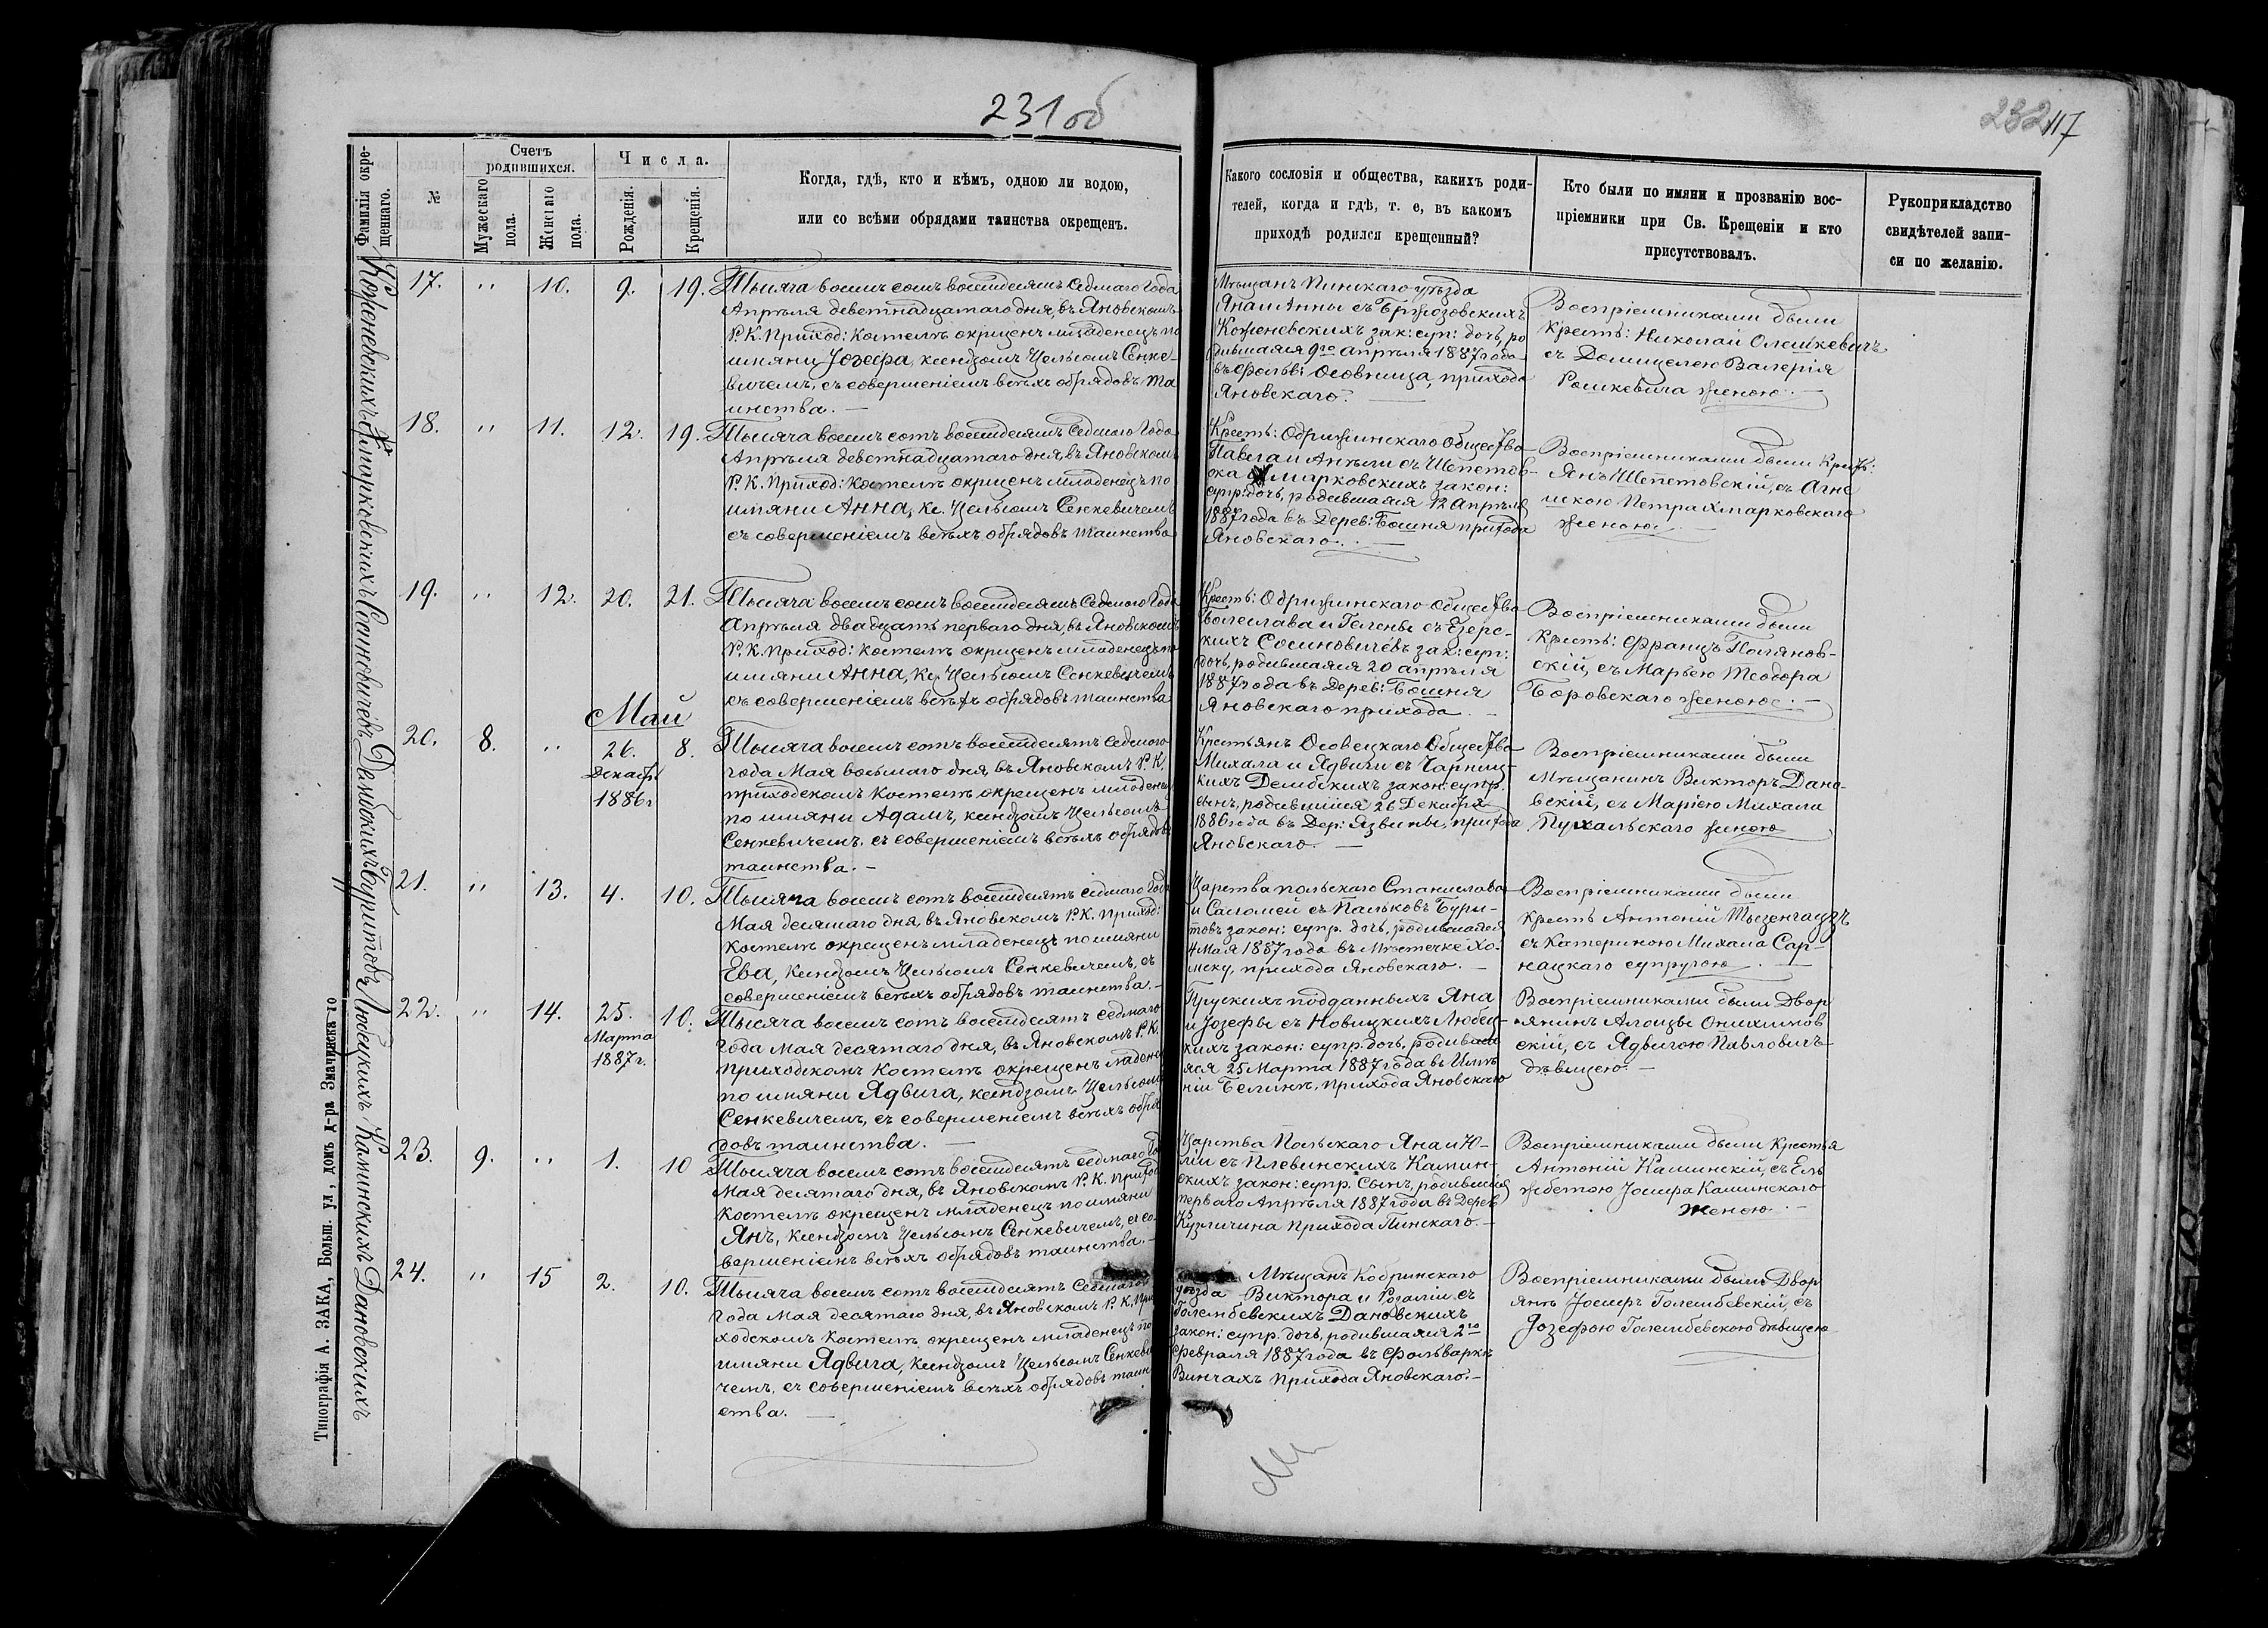 231об
232 117
Фамилія окрещеннаго.
№
Счетъ родившихся.
Мужескаго пола.
Женскаго пола.
Числа.
Рожденія.
Крещенія.
Когда, гдѣ, кто и кѣмъ, одною ли водою,
или со всѣми обрядами таинства окрещенъ.
Какого сословія и общества, какихъ роди-
телей, когда и гдѣ, т. е, въ какомъ
приходѣ родился крещенный?
Кто были по имяни и прозванію вос-
пріемники при Св. Крещеніи и кто
присутствовалъ.
Рукоприкладство
свидѣтелей запи-
си по желанію.
Коженевскихъ
17. " 10. 9. 19.
Тысяча восемь сотъ восемдесятъ седмаго года
Апрѣля деветнадцатаго дня, въ Яновскомъ
Р. К. Приход: Костелѣ окрщенъ младенецъ по
имяни Іозефа, ксендзомъ Цельсомъ Сенке-
вичемъ, съ совершеніемъ всѣхъ обрядовъ та
инства. —
Мѣщанъ Пинскаго уѣзда
Яна и Анны съ Бржозовскихъ
Коженевскихъ зак: суп: дочь, ро
дившаяся 9го апрѣля 1887 года
въ фольв: Осовница, прихода
Яновскаго. —
Воспріемниками были
крест: Николай Олешкевичъ
съ Домицелею Валерія
Рошкевича женою. —
Хмарковскихъ
18. " 11. 12. 19.
Тысяча восемь сотъ восемдесятъ седмаго года
Апрѣля девстнадцатаго дня, въ Яновскомъ
Р. К. Приход: Костелѣ окрщенъ младенецъ по
имяни Анна, Кс. Цельсомъ Сенкевичемъ
съ совершеніемъ всѣхъ обрядовъ таинства
Крест: Одрижинскаго Общества
Павла и Анѣли съ Шепетов-
ска Хмарковскихъ закон:
супр: дочь, родившаяся 12 апрѣля
1887 года въ Дерев: Башня прихода
Яновскаго. —
Воспріемниками были Крест:
Янъ Шепетовскій, съ Агне
шкою Петра Хмарковскаго
женою. —
Сосиновичёвъ
19. " 12. 20. 21.
Тысяча восемь сотъ восемдесятъ седмаго года
Апрѣля двадцать перваго дня, въ Яновскомъ
Р. К. Приход: костелѣ окрщенъ младенецъ по
имяни Анна, Кс. Цельсомъ Сенкевичемъ
съ совершеніемъ всѣхъ обрядовъ таинства
Крест: Одрижинскаго общества
Болеслава и Гелены съ Езерс-
кихъ Сосиновичёвъ зак: суп:
дочь, родившаяся 20 апрѣля
1887 года въ Дерев: Башня
Яновскаго прихода. —
Воспріемниками были
Крест: Францъ Поляновс-
скій, съ Марьею Теодора
Боровскаго женою. —
Май
Дембскихъ
20. 8. " 26. Декабр 1886г 8.
Тысяча восемь сотъ восемдесятъ седмого
года Мая восьмаго дня, въ Яновскомъ Р. К.
приходскомъ костелѣ окрещенъ младенецъ
по имяни Адамъ, ксендзомъ Цельсомъ
Сенкевичемъ, съ совершеніемъ всѣхъ обрядовъ
таинства. —
Крестьянъ Осовецкаго Общества
Михала и Ядвиги съ Чарниц-
кихъ Дембскихъ закон: супр.
сынъ, родившійся 26 Декабря
1886 года въ Дер: Язвины, прихода
Яновскаго. —
Воспріемниками были
Мѣщанинъ Викторъ Дано-
вскій, съ Маріею Михала
Пухальскаго женою
Буритовъ
21. " 13. 4. 10.
Тысяча восемь сотъ восемдесятъ седмаго года
Мая десятаго дня, въ Яновскомъ Р. К. Приход:
костелѣ окрещенъ младенецъ по имяни
Ева, ксендзомъ Цельсомъ Сенкевичемъ, съ
совершеніемъ всѣхъ обрядовъ таинства. —
Царства польскаго Станислава
и Саломей съ Пальковъ Бури-
товъ закон: супр. дочь, родившаяся
4 Мая 1887 года въ Мѣстечке Хо-
мску, прихода Яновскаго. —
Воспріемниками были
крест Антоній Тызенгаузъ
съ Катериною Михала Сар-
нацкаго супругою. —
Любецкихъ
22. " 14. 25. Марта 1887г. 10.
Тысяча восемь сотъ восемдесятъ седмаго
года Мая десятаго дня, въ Яновскомъ Р. К.
приходскомъ Костелѣ окрещенъ младенецъ
по имяни Ядвига, ксендзомъ Цельсомъ
Сенкевичемъ, съ совершеніемъ всѣхъ обря
довъ таинства. —
Прускихъ подданныхъ Яна
и Іозефы съ Новицкихъ Любец-
кихъ закон: супр. дочь, родивша
яся 25 Марта 1887 года въ Имѣ
ніи Белинѣ, прихода Яновскаго
Воспріемниками были Двор
янинъ Алоизы Онихимов
скій, съ Ядвигою Павловичъ
дѣвицею. —
Каминскихъ
23. 9. " 1. 10
Тысяча восемь сотъ восемдесятъ седмаго год
Мая десятаго дня, въ Яновскомъ Р. К. Приход
костелѣ окрещенъ младенецъ по имяни
Янъ, Ксендзомъ Цельсомъ Сенкевичемъ, съ со-
вершеніемъ всѣхъ обрядовъ таинства. —
Царства Польскаго Яна и Ю-
ліи съ Плевинскихъ Камин-
скихъ закон: супр. Сынъ, родившійся
перваго Апрѣля 1887 года въ Дерев
Кужличина прихода Пинскаго. —
Воспріемниками были Крестья
Антоній Каминскій, съ Ель
жбетою Іосифа Каминскаго
женою. —
Дановскихъ
24. " 15 2. 10.
Тысяча восемь сотъ восемдесятъ Седмаго
года Мая десятаго дня, въ Яновскомъ Р. К. При
ходскомъ Костелѣ окрещенъ младенецъ по
имяни Ядвига, Ксендзомъ Цельсомъ Сенкеви
чемъ, съ совершеніемъ всѣхъ обрядовъ таин
ства. —
Мѣщанъ Кобринскаго
уѣзда Виктора и Розаліи съ
Голембевскихъ Дановскихъ
закон: супр. дочь, родившаяся 2го
Февраля 1887 года въ Фольваркѣ
Винчахъ прихода Яновскаго. —
Воспріемниками были Двор
янъ Іосифъ Голембевскій, съ
Іозефою Голембевскою дѣвицею
Типографія А. ЗАКА, Больш. ул., домъ д-ра Значинска го